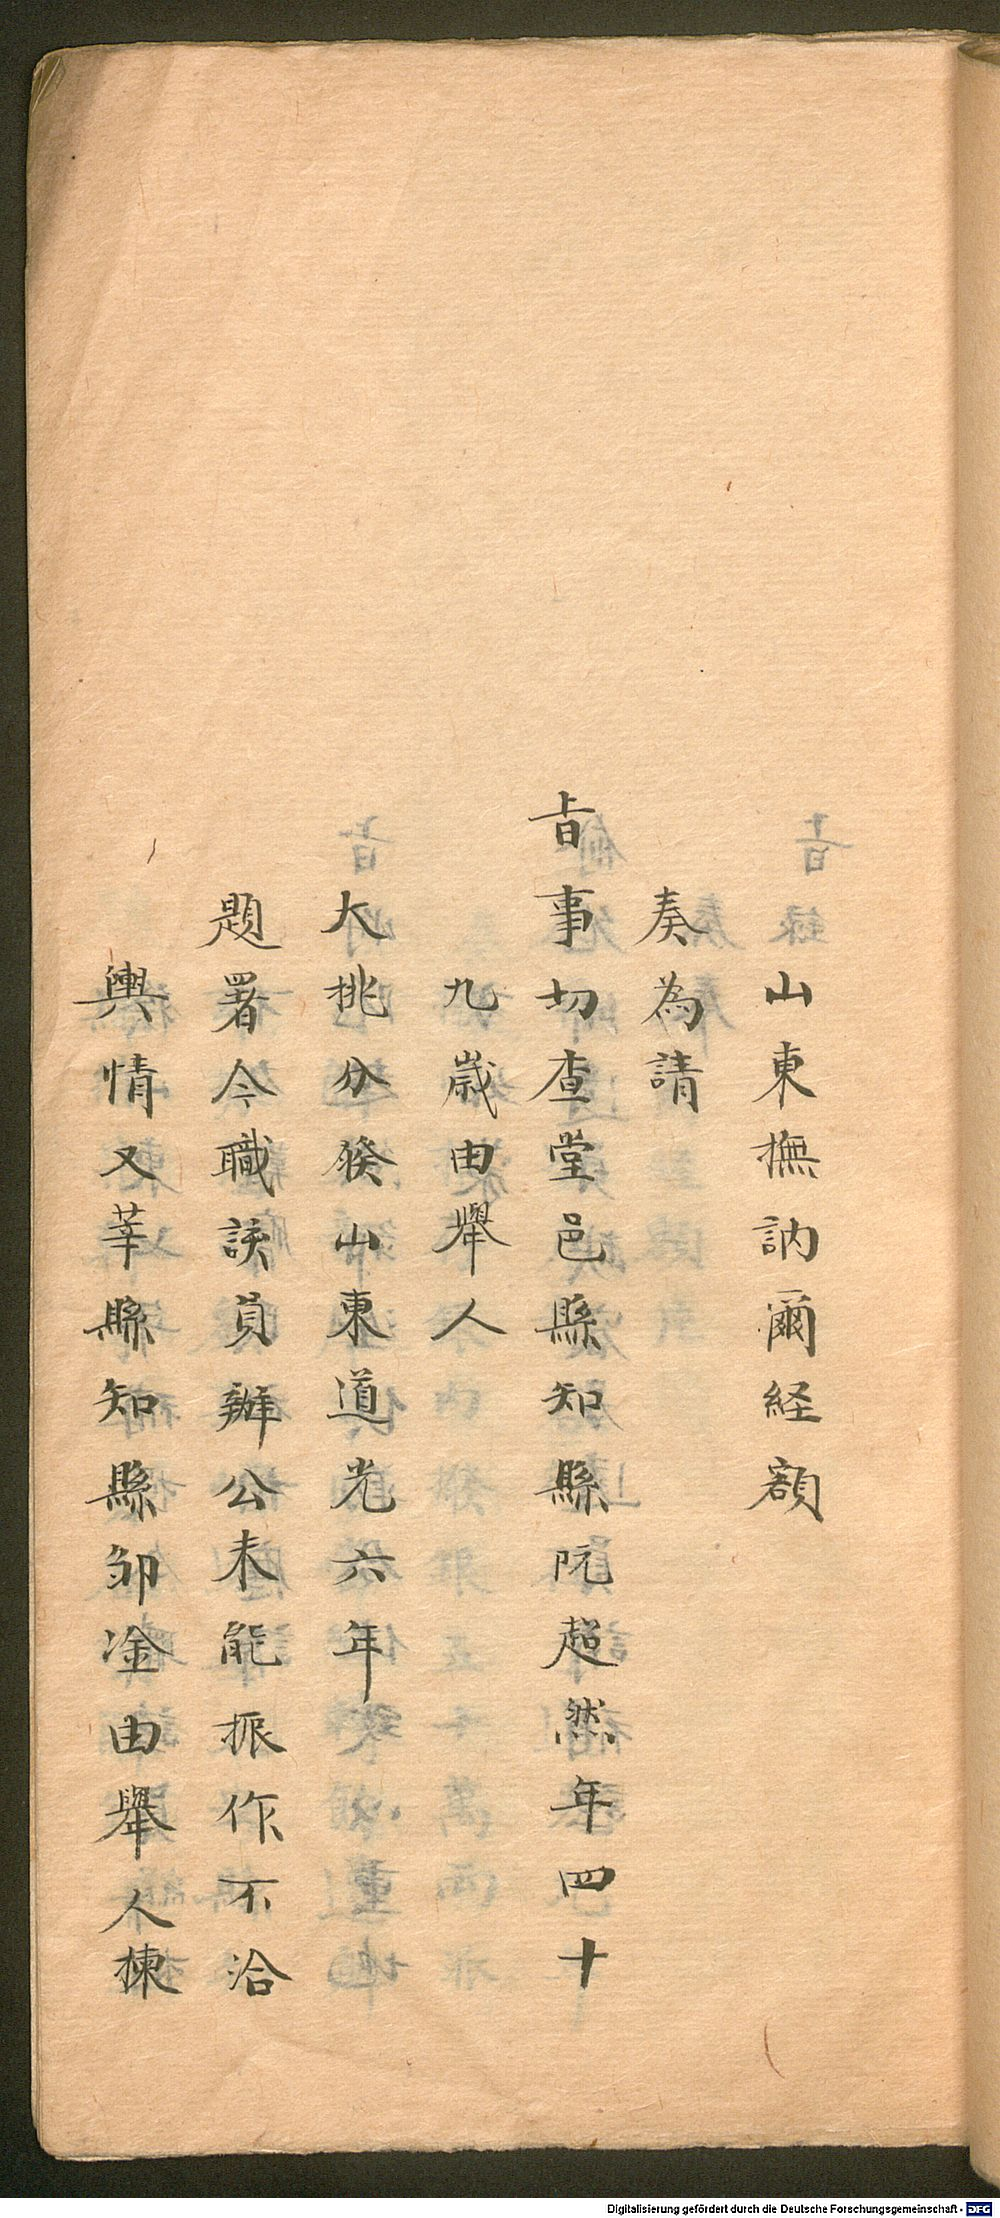 山東撫訥爾経額
奏為請
旨事切查堂邑縣知縣阮超然年四十
九歲由舉人
大挑分發山東道光六年
題署今職該員辦公未能振作不洽
輿情又莘縣知縣邹淦由舉人揀
Digitalisierung gefördert durch die Deutsche Forschungsgemeinschaft - DFG